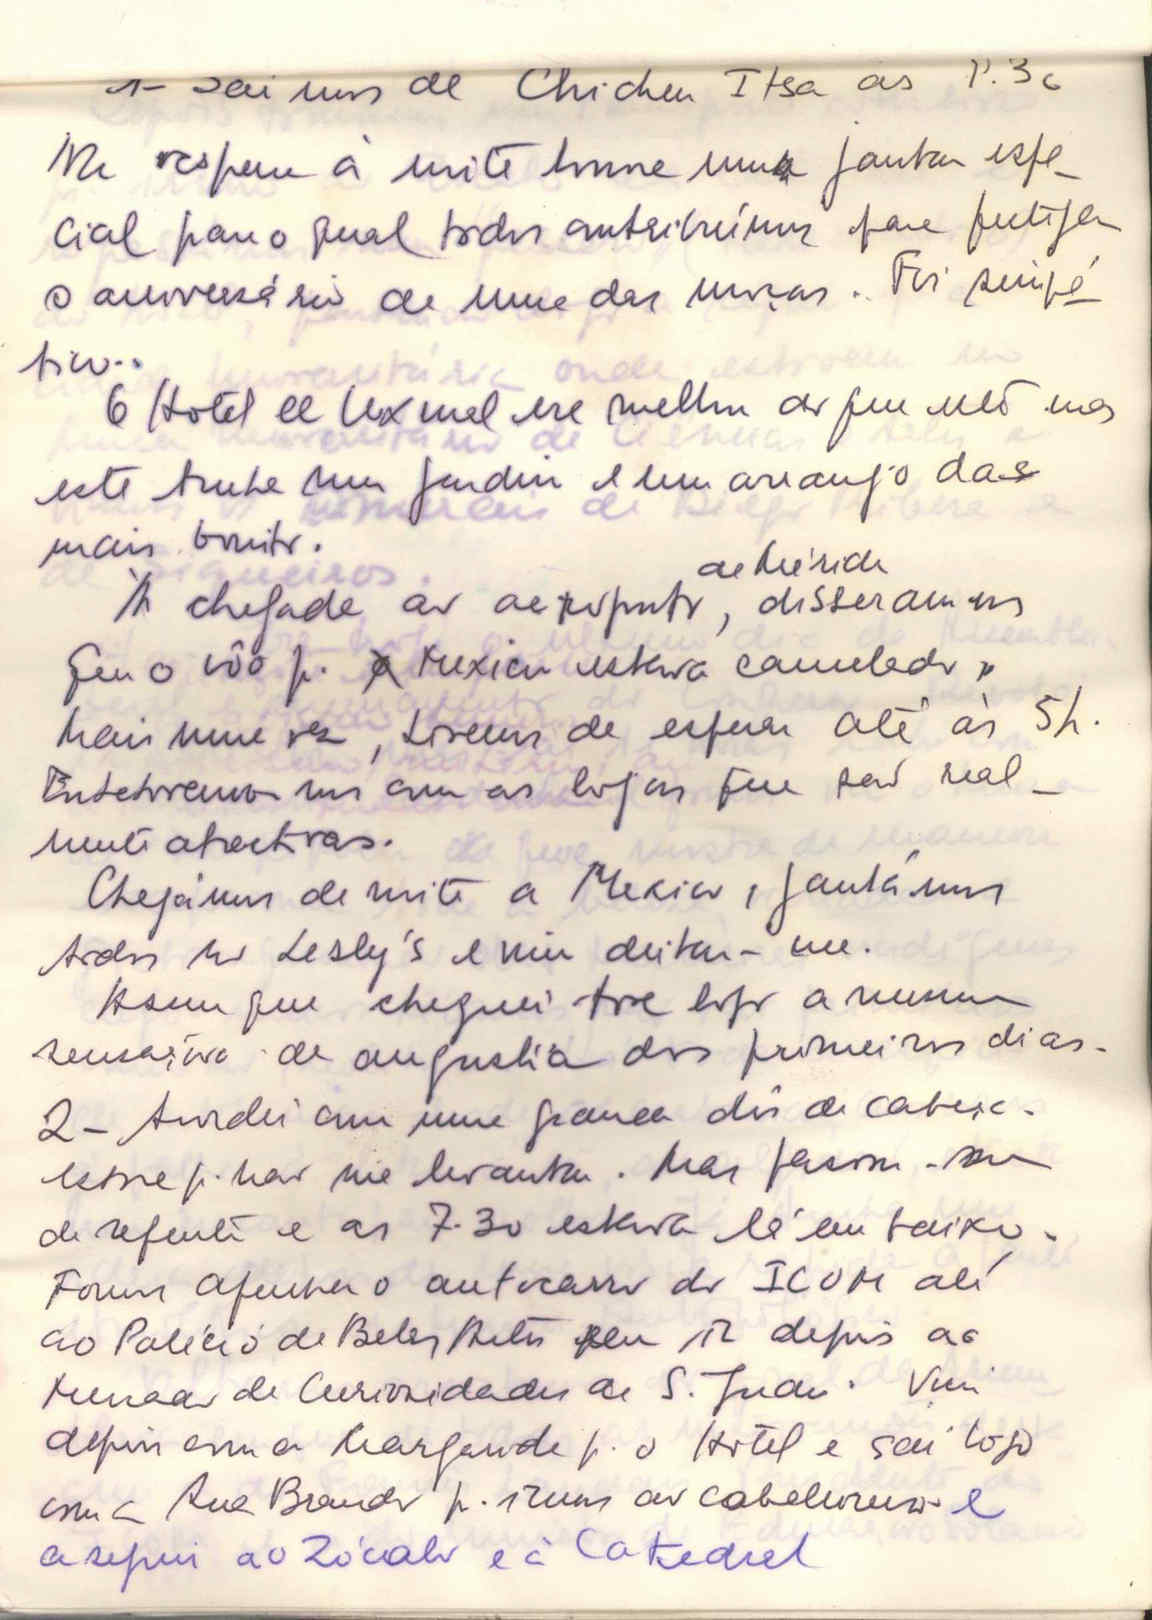 1- Saímos de Chichen Itsa as 1.30
Na vespera à noite houve um jantar espe-
cial para o qual todos contribuímos para festejar
o aniversário de uma das moças. Foi simpá-
tico..
O Hotel de Uxmal era melhor do que este mas
este tinha um jardin e um arranjo das
mais bonito.
À chegada ao aeroporto de Mérida, disseram-nos
que o vôo p. Mexico estava cancelado.
Mais uma vez, tivemos de esperar até às 5h.
Entretivemo-nos com as lojas que são real-
mente atractivas.
Chegámos de noite a Mexico, jantámos
todos no Lesly's e vim deitar-me.
Assim que cheguei tive logo a mesma
sensação de angustia dos primeiros dias.
2- Acordei com uma grande dôr de cabeça.
Estive p. não me levantar. Mas passou-me
de repente e as 7.30 estava lá em baixo.
Fomos apanhar o autocarro do ICOM até
ao Palácio de Belas Artes para ir depois ao
Mercado de Curiosidades de S. Juan. Vim
depois com a Margarida p. o Hotel e saí logo
com a Ana Brandr p. irmos ao cabeleireiro e
a seguir ao Zócalo e à Catedral